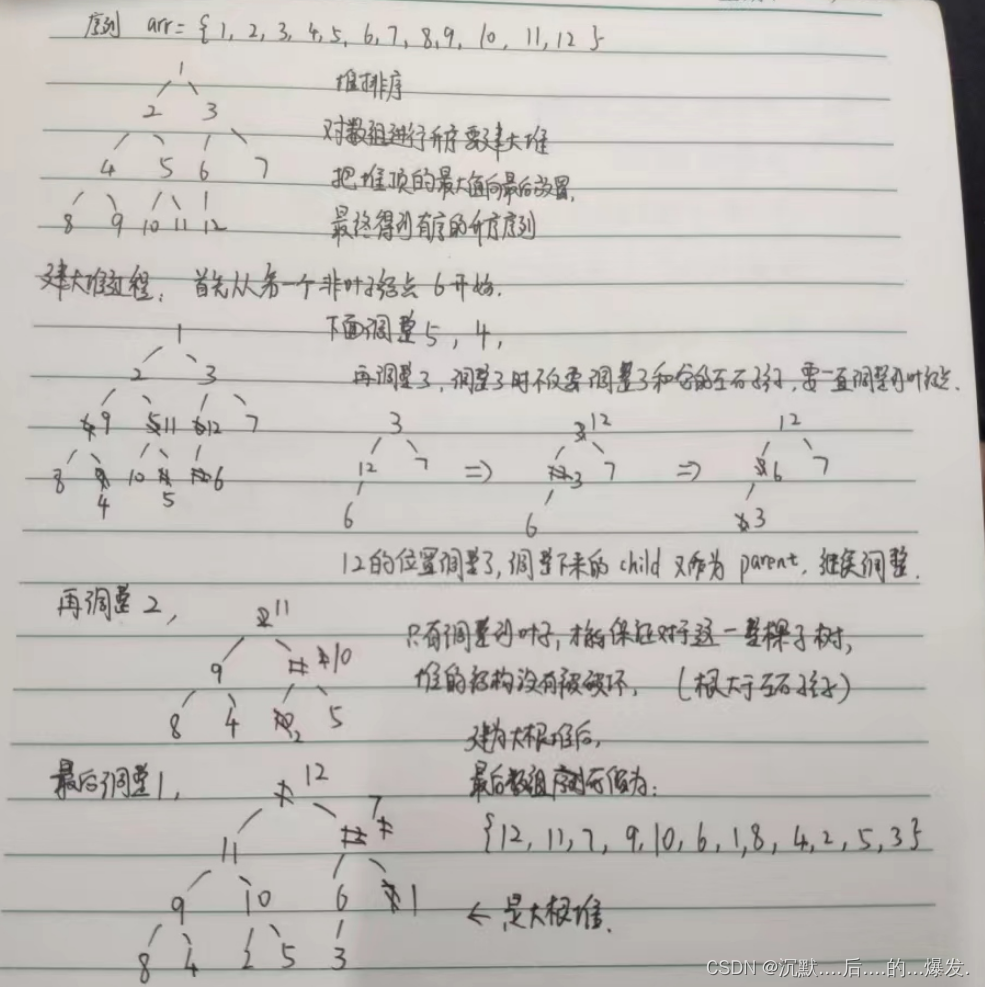 序列 arr = { 1, 2, 3, 4, 5, 6, 7, 8, 9, 10, 11, 12 }
1
堆排序
2 3
对数组进行升序要建大堆
4 5 6 7
把堆顶的最大值向最后放置,
8 9 10 11 12
最终得到有序的升序序列
建大堆过程: 首先从第一个非叶子结点 6 开始.
1
下面调整 5, 4,
2 3
再调整 3, 调整 3 时不仅要调整 3 和它的左右孩子, 要一直调整到叶结点.
4 9 5 11 6 12 7
8 9 10 11 12 6
4 5
3
12 7
6
=>
3 12
12 3 7
6
=>
12
3 6 7
6 3
12的位置调整了, 调整下来的 child 又作为 parent, 继续调整.
再调整 2,
2 11
9 11 2 10
8 4 10 2 5
只有调整到叶子, 才能保证对于这一整棵子树,
堆的结构没有被破坏. (根大于左右孩子)
建为大根堆后,
最后调整 1,
最后数组序列应为:
1 12
11 12 1 7
9 10 6 7 1
8 4 2 5 3
{12, 11, 7, 9, 10, 6, 1, 8, 4, 2, 5, 3}
← 是大根堆.
CSDN @沉默....后....的...爆发.